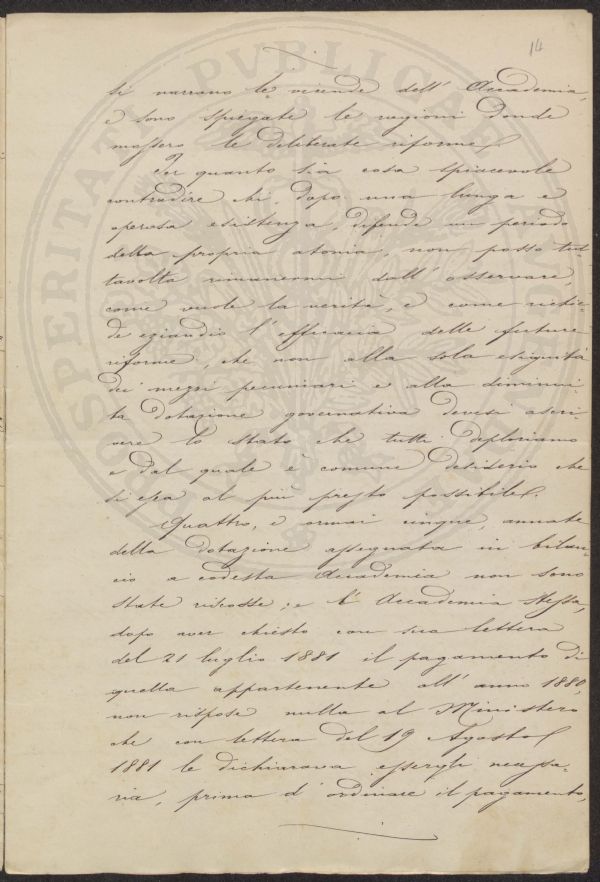 14
si narrano le vicende dell' Accademia,
e sono spiegate le ragioni donde
mossero le deliberate riforme.
Per quanto sia cosa spiacevole
contradire chi, dopo una lunga e
operosa esistenza, difende un periodo
della propria atonia, non posso tut-
tavolta rimanermi dall' osservare,
come vuole la verità, e come richie-
de eziandio l' efficacia delle future
riforme, che non alla sola esiguità
dei mezzi pecuniari e alla diminui-
ta dotazione governativa devesi ascri-
vere lo stato che tutti deploriamo
e dal quale è comune desiderio che
si esca al più presto possibile.
Quattro, e ormai cinque, annate
della dotazione assegnata in bilan-
cio a codesta Accademia non sono
state riscosse; e l' Accademia stessa,
dopo aver chiesto con sua lettera
del 21 luglio 1881 il pagamento di
quella appartenente all' anno 1880,
non rispose nulla al Ministero
che con lettera del 19 Agosto
1881 le dichiarava essergli necessa-
ria, prima d' ordinare il pagamento,
PROSPERITATI PVBLICAE